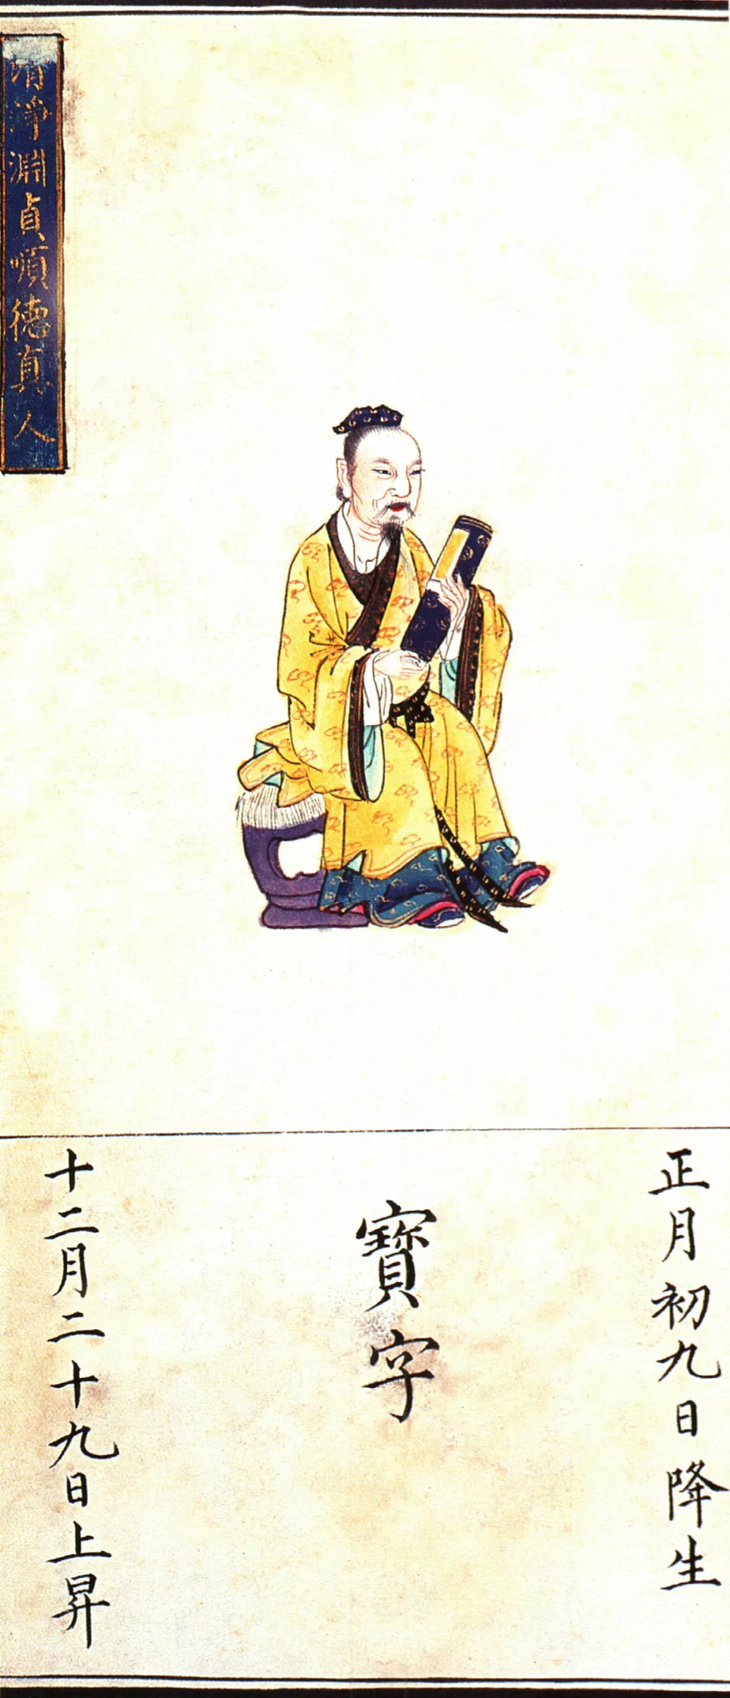 清淨淵貞順德真人
正月初九日降生
寶字
十二月二十九日上昇